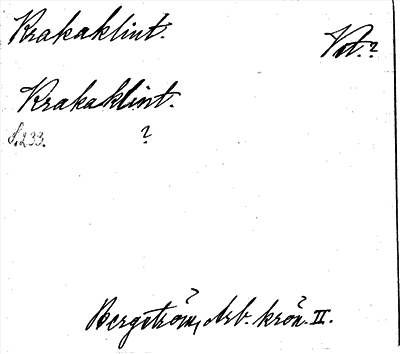 Krakaklint. Vst.?
Krakaklint.
S. 233. ?
Bergström, Arb. krön. II.